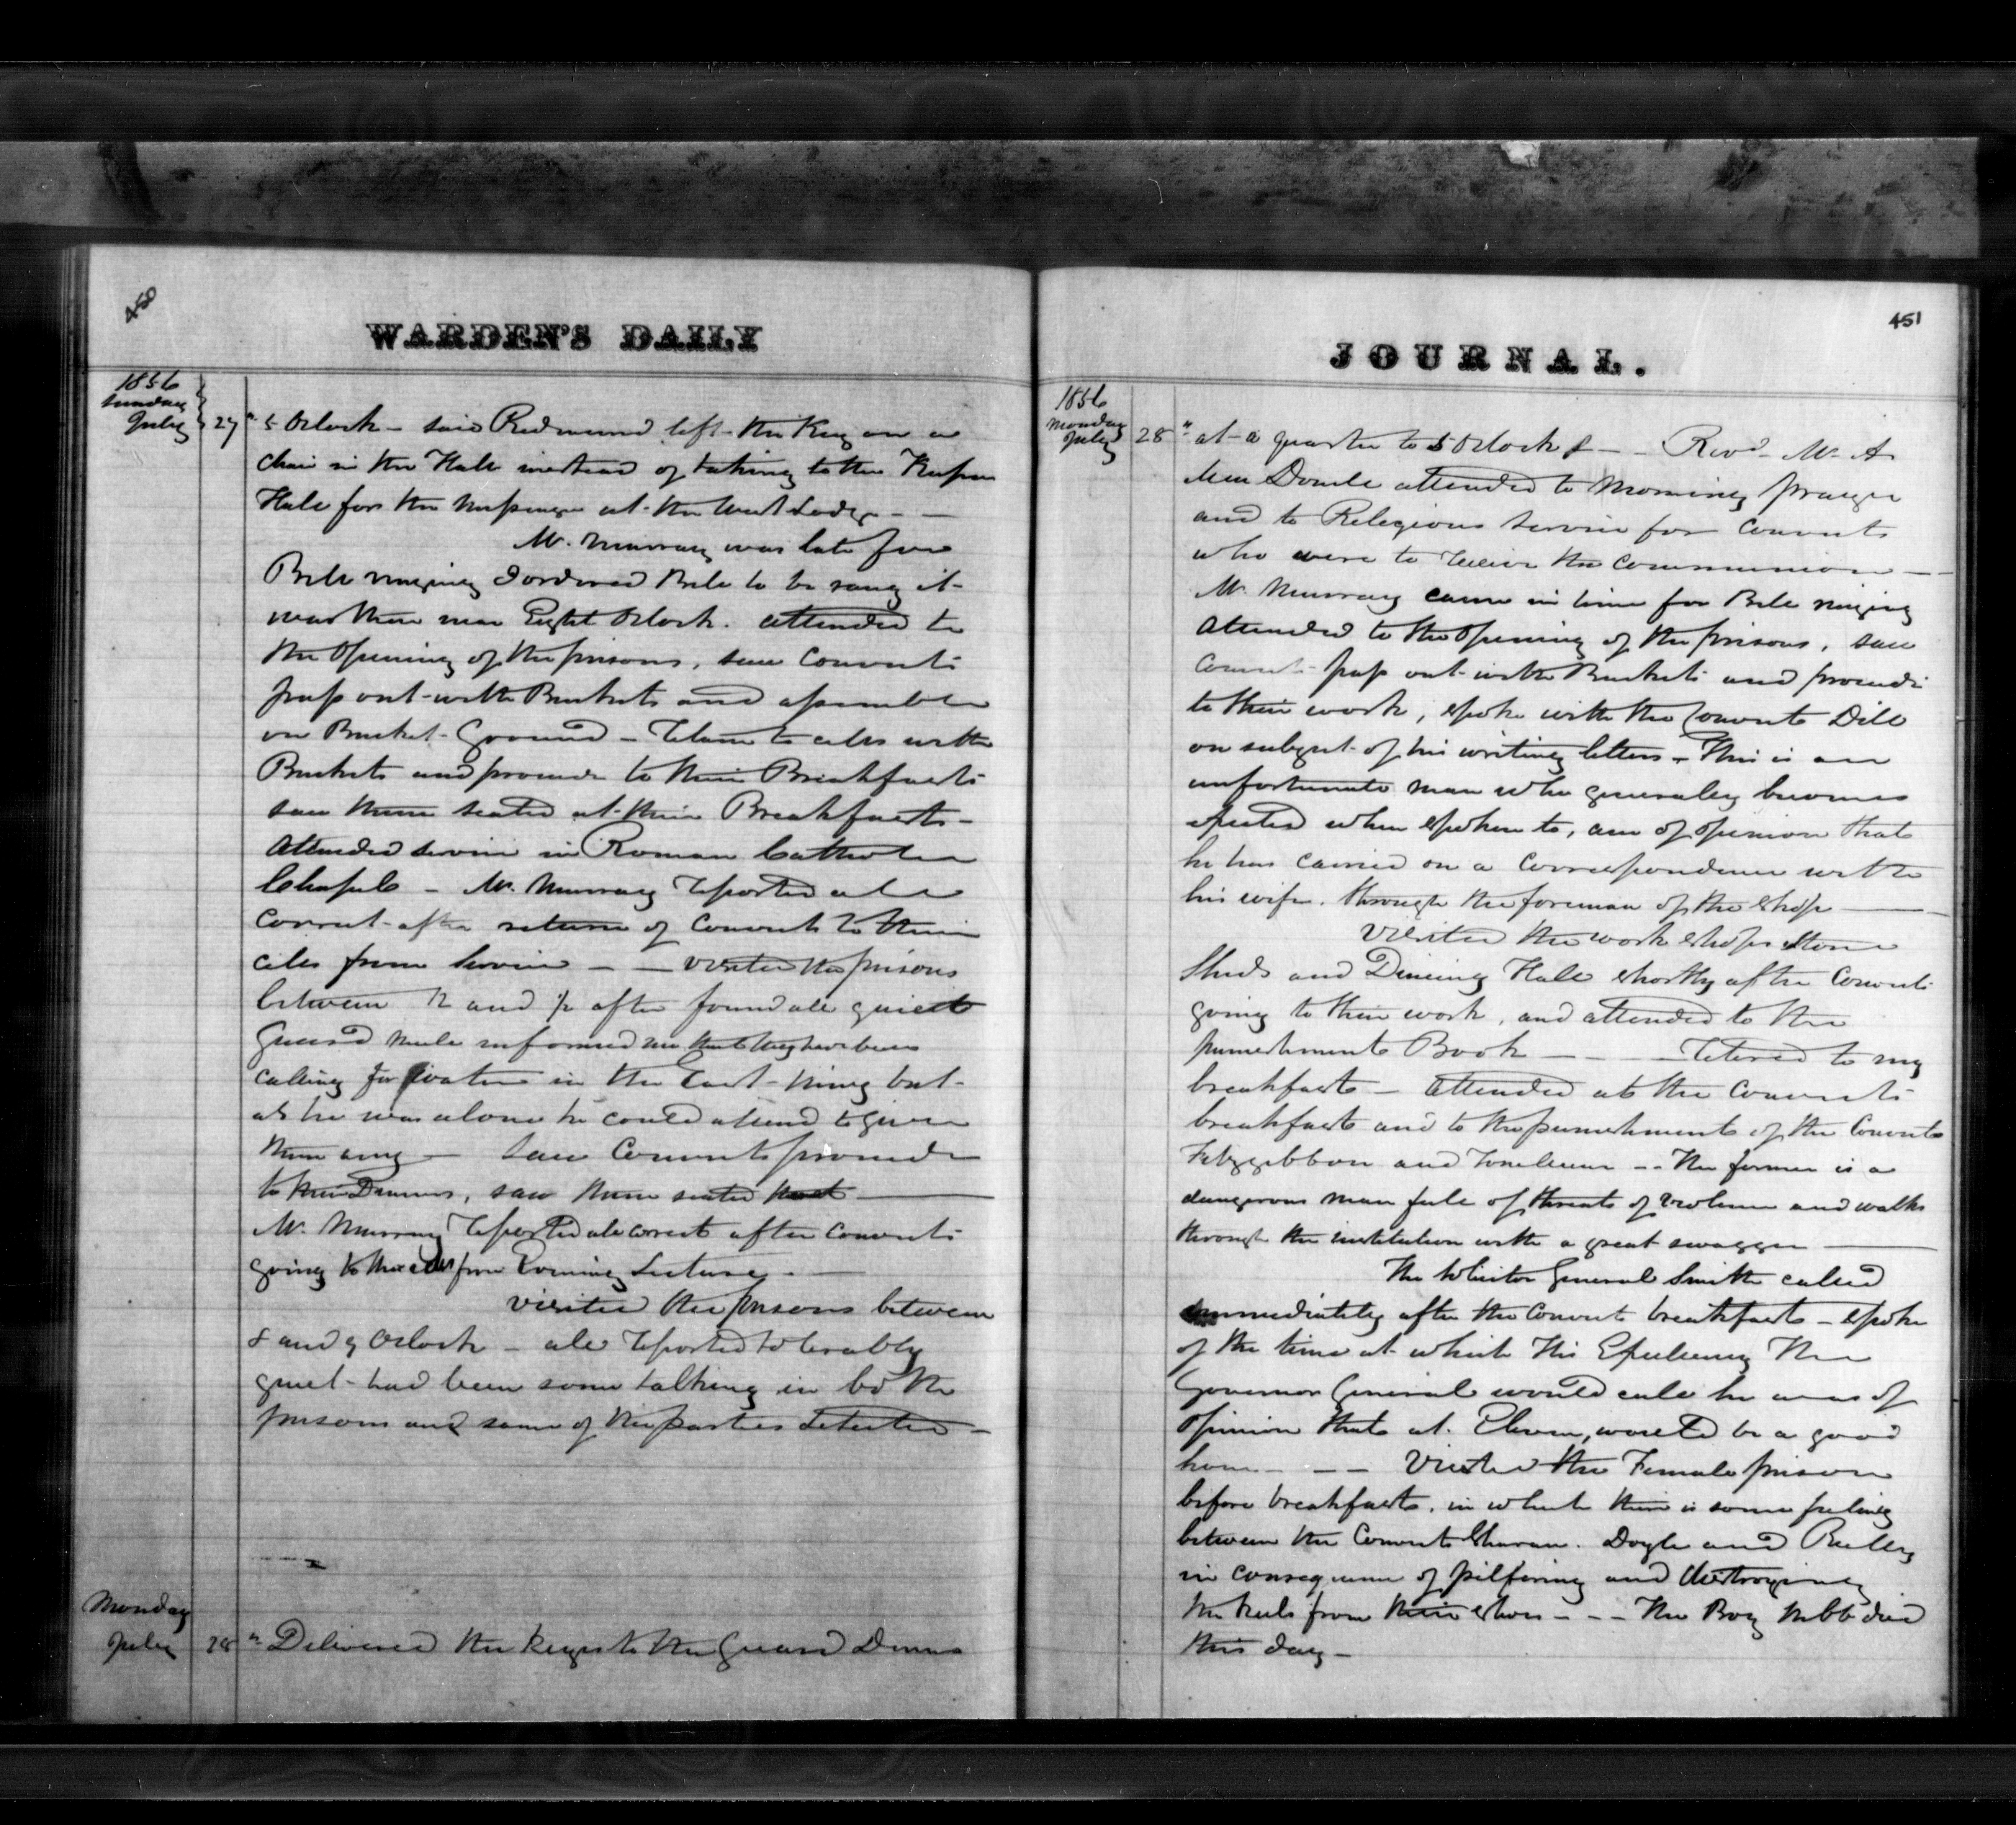 450
WARDEN'S DAILY
1856
Sunday
July 27 " 5 Oclock - said Redmund left the Key on a
Chair in the Hall instead of taking to the Keepers
Hall for the Messenger at the West Lodge - -
Mr. Murray was late for
Bell ringing I ordered Bell to be rang it
was then near Eight Oclock. Attended to
the Opening of the prisons, saw Convicts
pass out with Buckets and assemble
on Bucket Ground - Return to cells with
Buckets and proceede to their Breakfasts
saw them seated at their Breakfasts -
Attended service in Roman Catholic
Chapel - Mr. Murray reported all
Correct after return of Convicts to their
cells from Service - - visited the prisons
between 12 and 1/2 after found all quiet
Guard informed me that they have been
calling for water in the East Wing but
as he was alone he could attend to give
them any - Saw Convicts proceede
to their Dinners, saw them seated
Mr. Murray reported all correct after Convicts
going to their cells from Evening Lecture -
visited the prisons between
8 and 9 Oclock - all reported tolerably
quiet - had been some talking in both
prisons and some of the parties detected -
Monday
July 28 " Delivered the keys to the Guard
JOURNAL.
451
1856
Monday
July 28 " at a quarter to 5 Oclock - - Revd. Mr. A
attended to Morning prayer
and to Religious Service for Convicts
who were to receive the Communion -
Mr. Murray came in time for Bell ringing
Attended to the Opening of the prisons, saw
Convicts pass out with Buckets and proceede
to their work, spoke with the Convict Dill
on subject of his writing letters - This is an
unfortunate man who generaley becomes
when spoken to, am of opinion that
he has carried on a Correspondence with
his wife. through the foreman of the shop
Visited the work shops Stone
Sheds and Dining Hall shortly after Convicts
going to their work, and attended to the
punishments Book - - - retired to my
breakfast - attended at the Convicts
breakfasts and to the punishments of the Convicts
Fitzgibbon and - - the former is a
dangerous man full of threats of violence and walks
through the institution with a great swagger
The Solicitor General Smith called
immediately after the Convicts breakfasts - spoke
of the time at which His Excellency The
Governor General would call he was of
opinion that at Eleven, would be a good
hour - - - Visited the Female prison
before breakfast, in which there is some feeling
between the Convicts Doyle and
in consequence of pilfering and destroying
the heels from their shoes - - - The Boy died
this day -